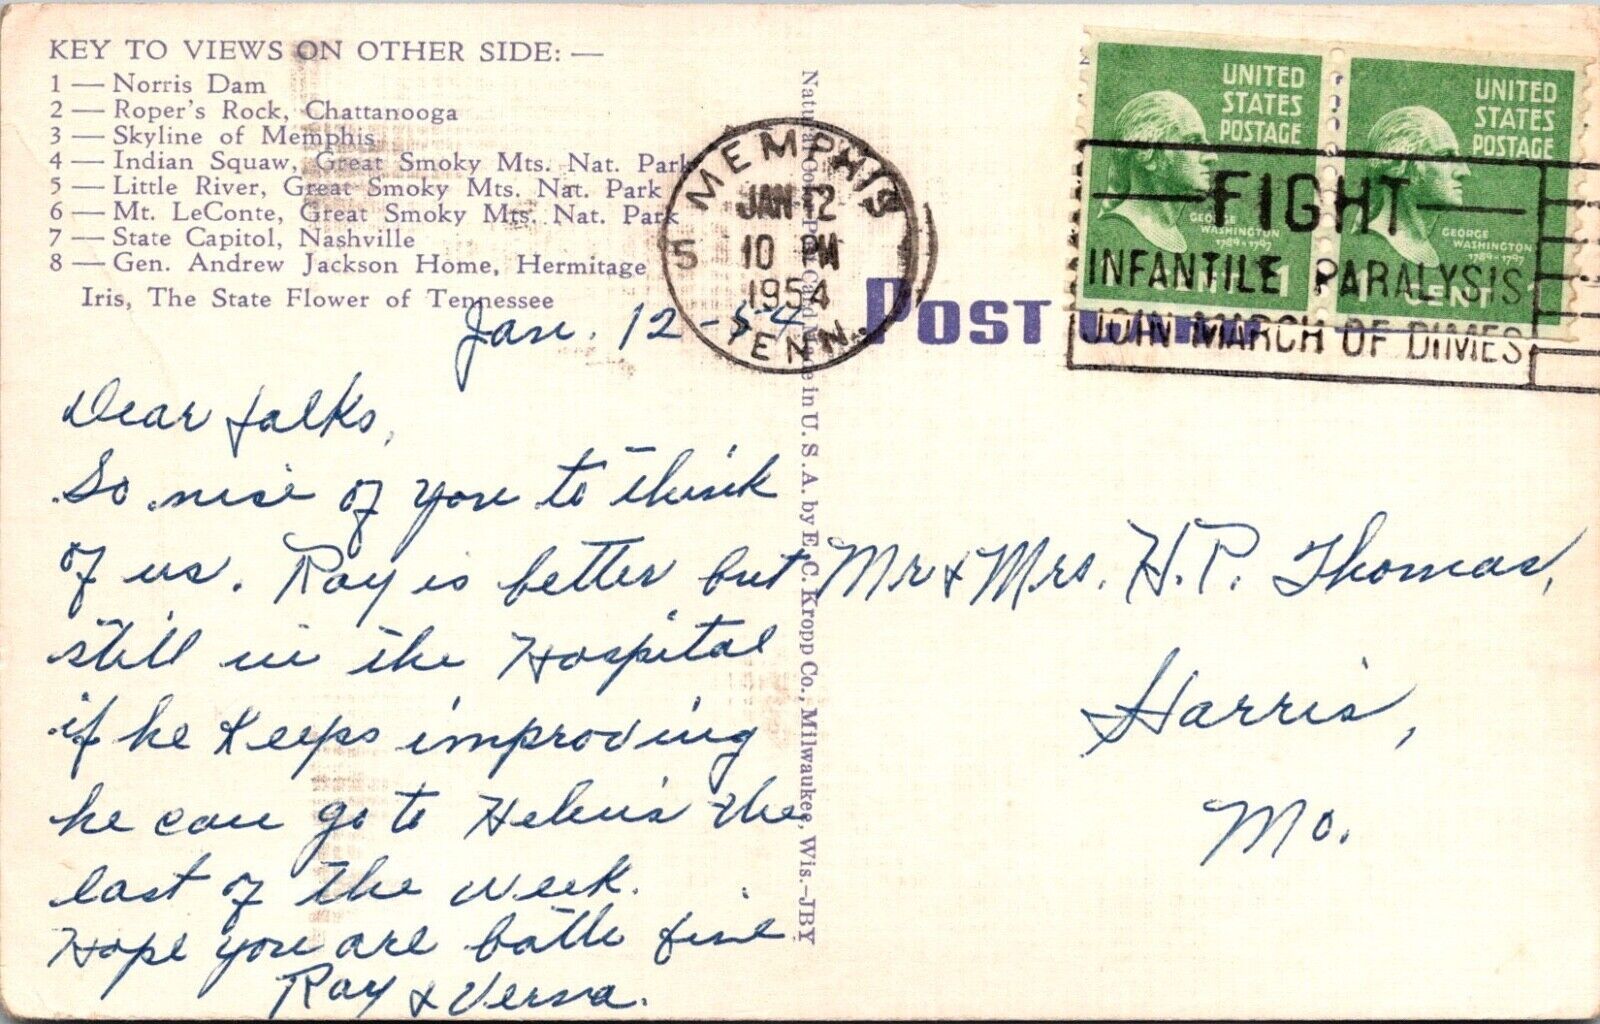 KEY TO VIEWS ON OTHER SIDE: —
1 — Norris Dam
2 — Roper's Rock, Chattanooga
3 — Skyline of Memphis
4 — Indian Squaw, Great Smoky Mts. Nat. Park
5 — Little River, Great Smoky Mts. Nat. Park
6 — Mt. LeConte, Great Smoky Mts. Nat. Park
7 — State Capitol, Nashville
8 — Gen. Andrew Jackson Home, Hermitage
Iris, The State Flower of Tennessee
Jan. 12-54
Dear folks,
So nice of you to think
of us. Ray is better but
still in the Hospital
if he keeps improving
he can go to Helen's the
last of the week.
Hope you are both fine
Ray & Verna.
Natural Color Post Card Made in U. S. A. by E. C. Kropp Co., Milwaukee, Wis.—JBY
MEMPHIS
JAN 12
5 10 PM
1954
TENN.
POST CARD
UNITED
STATES
POSTAGE
GEORGE
WASHINGTON
1789-1797
CENT 1
UNITED
STATES
POSTAGE
GEORGE
WASHINGTON
1789-1797
1 CENT 1
FIGHT
INFANTILE PARALYSIS
JOIN MARCH OF DIMES
Mr & Mrs. H. P. Thomas,
Harris,
Mo.